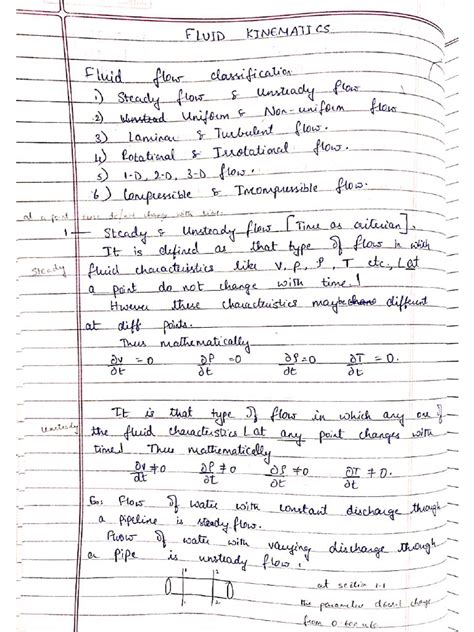 FLUID KINEMATICS
Fluid flow classification
1) Steady flow & Unsteady flow
2) Uniform & Non-uniform flow
3) Laminar & Turbulent flow.
4) Rotational & Irrotational flow.
5) 1-D, 2-D, 3-D flow.
6) Compressible & Incompressible flow.
at a point change with time
1 — Steady & Unsteady flow [Time as criterian].
It is defined as that type of flow in which
Steady
fluid characteristics like v, p, ρ, T etc., at
a point do not change with time!
However these characteristics may be different
at diff points.
Thus mathematically
∂v/∂t = 0 ∂P/∂t = 0 ∂ρ/∂t = 0 ∂T/∂t = 0.
It is that type of flow in which any one of
unsteady
the fluid characteristics at any point changes with
time! Thus mathematically
∂v/∂t ≠ 0 ∂P/∂t ≠ 0 ∂ρ/∂t ≠ 0 ∂T/∂t ≠ 0.
Eg: Flow of water with constant discharge through
a pipeline is steady flow.
Flow of water with varying discharge through
a Pipe is unsteady flow.
1 2
1 2
at section 1-1
the parameter doesn't change
from 0 to